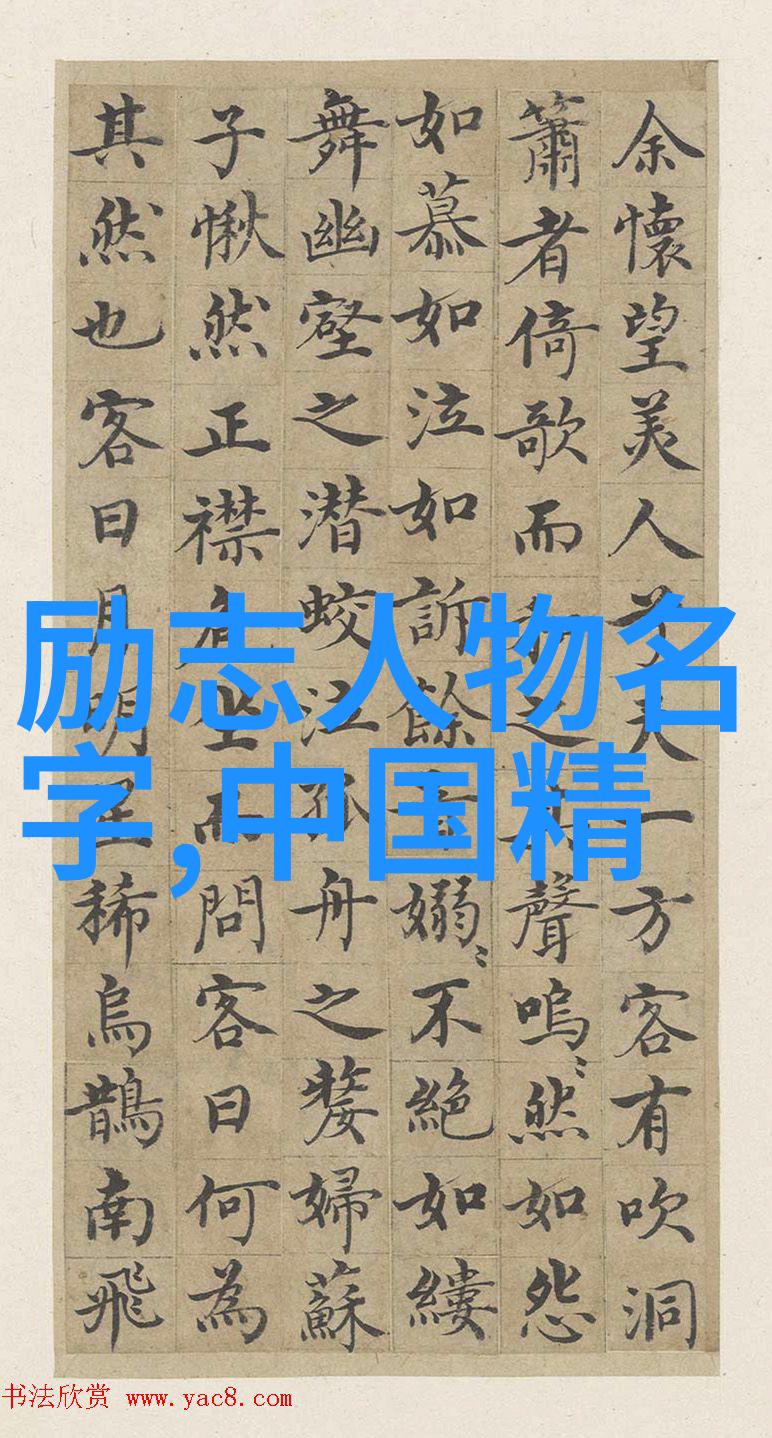 余懷望美人兮天一方客有吹洞
簫者倚歌而和之其聲嗚〻然如怨
如慕如泣如訴餘音嫋〻不絕如縷
舞幽壑之潜蛟泣孤舟之嫠婦蘇
子愀然正襟危坐而問客曰何為
其然也客曰月明星稀烏鵲南飛
励志人物名
字,中国精
书法欣赏 www.yac8.com